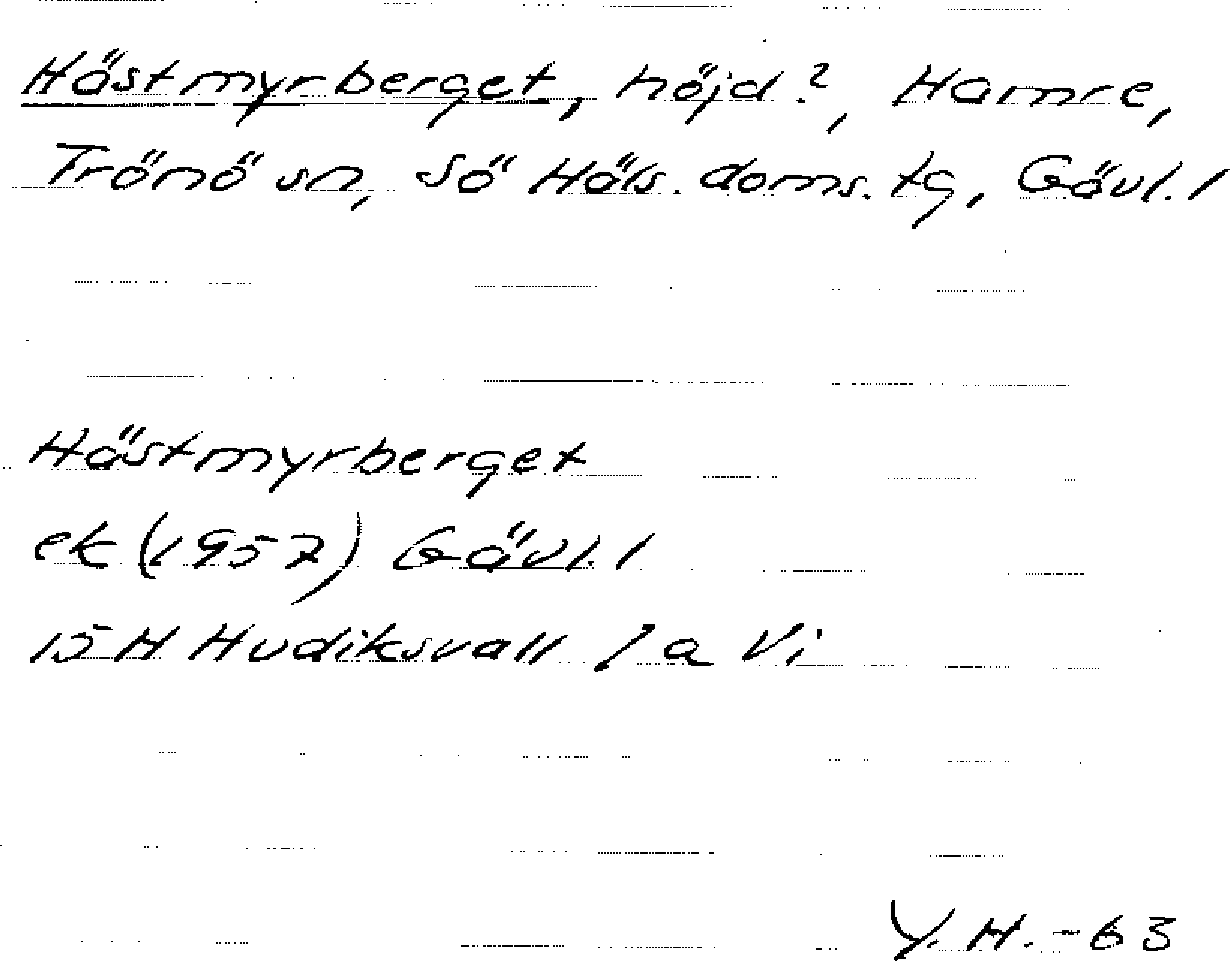 Hästmyrberget, höjd?, Hamre,
Trönö sn, Sö Häls. doms. tg, Gävl. l
Hästmyrberget
ek (1957) Gävl. l
15 H Hudiksvall 1 a Vi
Y. H. -63